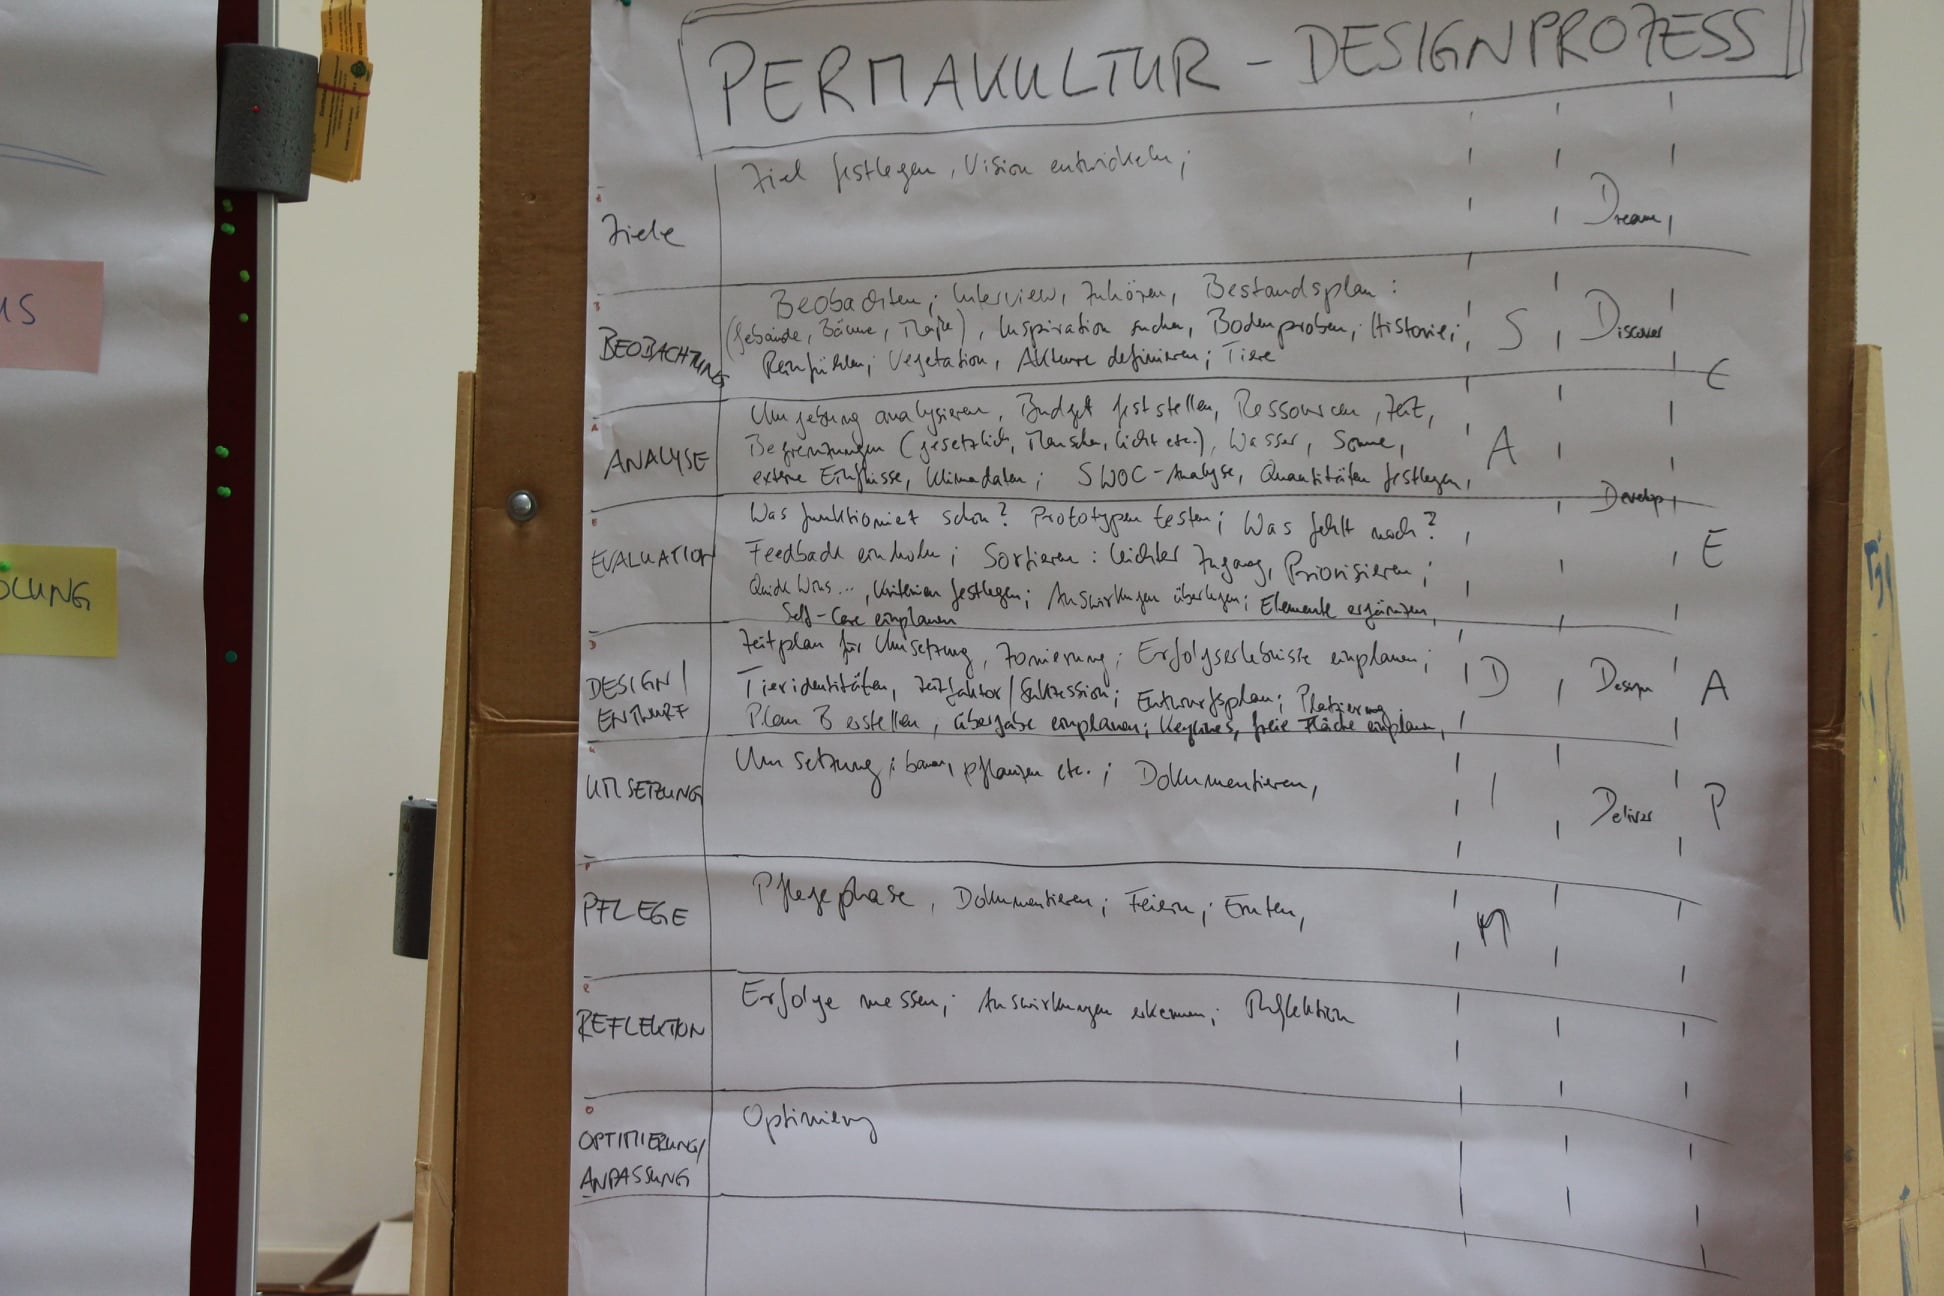 PERMAKULTUR - DESIGNPROZESS
Ziele
Ziel festlegen, Vision entwickeln;
Dream
BEOBACHTUNG
Beobachten; Interview, Zuhören, Bestandsplan:
(Gebäude, Bäume, Maße), Inspiration suchen, Bodenproben, Historie;
Reinfühlen; Vegetation, Akteure definieren; Tiere
S
Discover
C
ANALYSE
Umgebung analysieren, Budget feststellen, Ressourcen, Zeit,
Begrenzungen (gesetzlich, Menschen, Licht etc.), Wasser, Sonne,
externe Einflüsse, Klimadaten; SWOC-Analyse, Quantitäten festlegen,
A
Develop
EVALUATION
Was funktioniert schon? Prototypen testen; Was fehlt noch?
Feedback einholen; Sortieren: leichter Zugang, Priorisieren;
Quick Wins..., Kriterien festlegen; Auswirkungen überlegen; Elemente ergänzen,
Self-Care einplanen
E
DESIGN/
ENTWURF
Zeitplan für Umsetzung, Zonierung; Erfolgserlebnisse einplanen;
Tieridentitäten, Zeitfaktor/Sukzession; Entwurfsplan; Platzierung
Plan B erstellen, Übergabe einplanen; Keylines, freie Fläche einplanen,
D
Design
A
UMSETZUNG
Umsetzung; bauen, pflanzen etc.; Dokumentieren,
I
Deliver
P
PFLEGE
Pflegephase, Dokumentieren; Feiern; Ernten,
M
REFLEKTION
Erfolge messen; Auswirkungen erkennen; Reflektion
OPTIMIERUNG/
ANPASSUNG
Optimierung
US
OLUNG